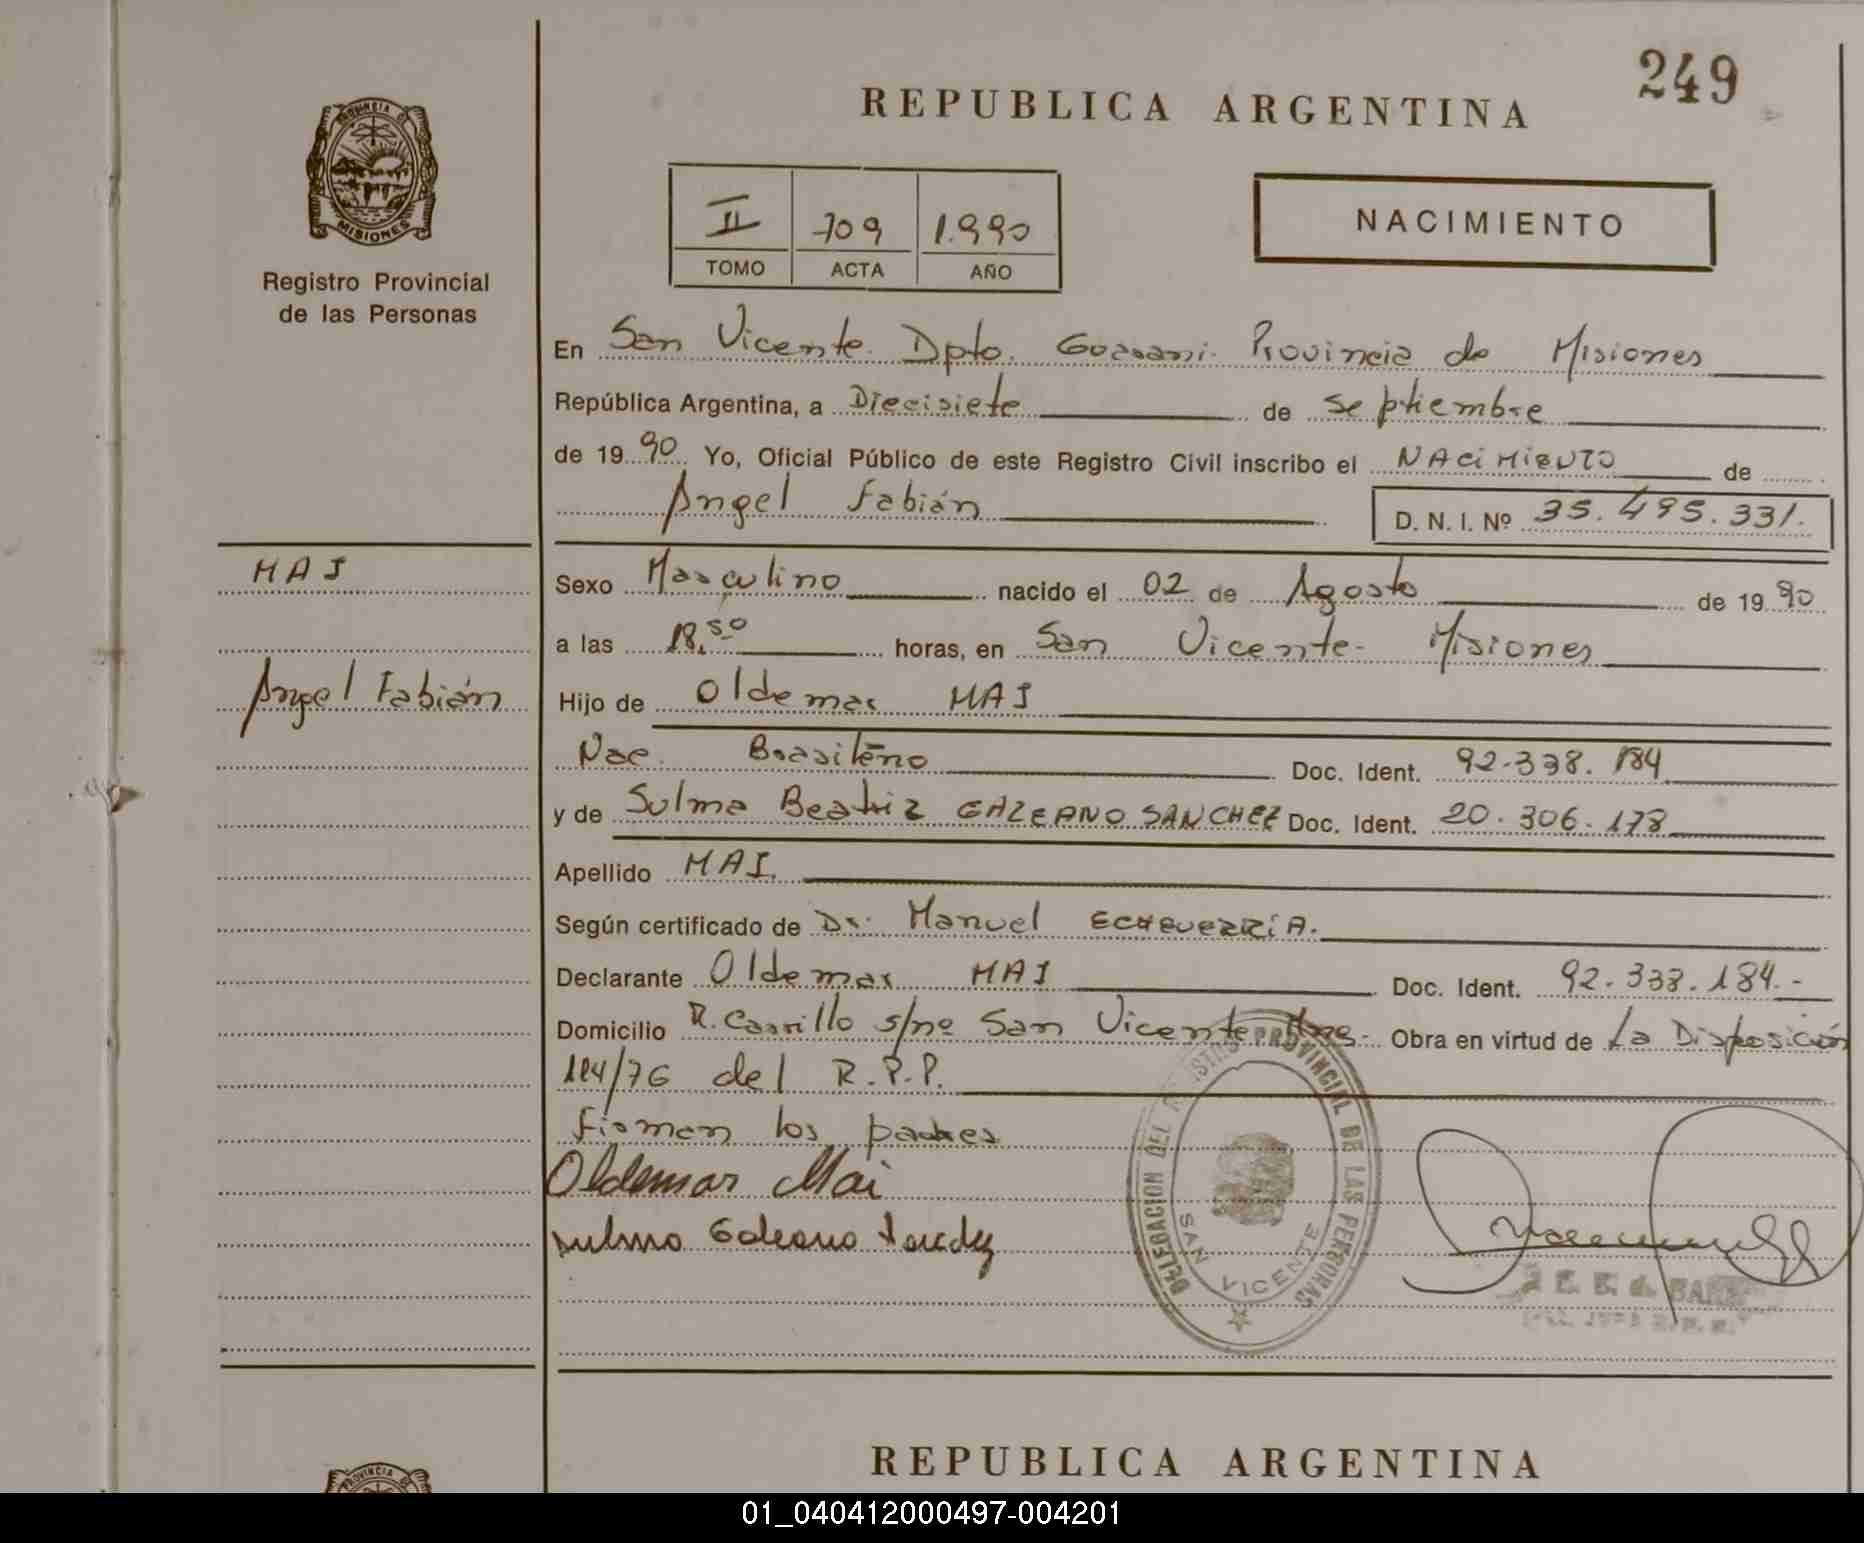 249
REPUBLICA ARGENTINA
PROVINCIA DE
MISIONES
Registro Provincial
de las Personas
II 709 1.990
TOMO ACTA AÑO
NACIMIENTO
En San Vicente. Dpto. Guarani. Provincia de Misiones
República Argentina, a Diecisiete de septiembre
de 1990. Yo, Oficial Público de este Registro Civil inscribo el NACIMIENTO de
Angel Fabián D. N. I. Nº 35.495.331.
MAI
Angel Fabián
Sexo Masculino nacido el 02 de Agosto de 1990
a las 18.50 horas, en San Vicente- Misiones
Hijo de Oldemar MAI
Nac. Brasileño Doc. Ident. 92.338.184
y de Sulma Beatriz GALEANO SANCHEZ Doc. Ident. 20.306.178
Apellido MAI.
Según certificado de Dr. Manuel ECHEVERRIA.
Declarante Oldemar MAI Doc. Ident. 92.338.184.-
Domicilio R. Carrillo s/nº San Vicente Mnes.- Obra en virtud de La Disposición
184/76 del R.P.P.
Firman los padres
Oldemar Mai
Sulma Galeano
DELEGACION DEL REGISTRO PROVINCIAL DE LAS PERSONAS
SAN VICENTE
REPUBLICA ARGENTINA
PROVINCIA DE
01_040412000497-004201